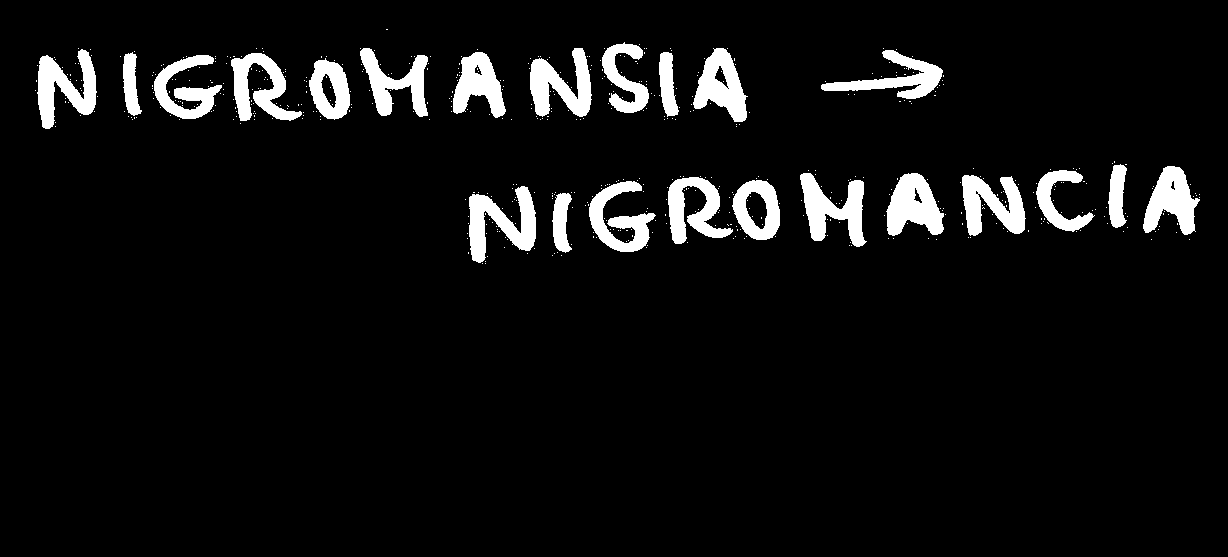 NIGROMANSIA →
NIGROMANCIA